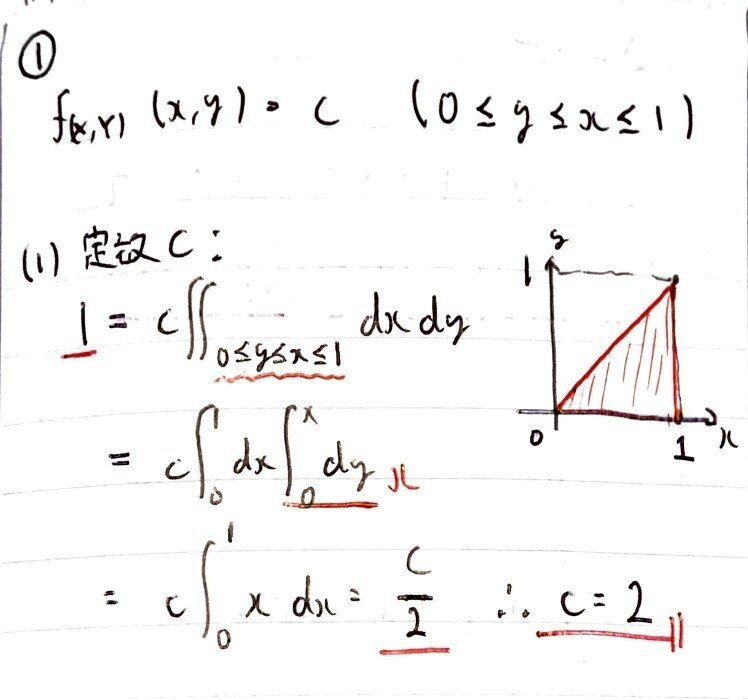 ①
f(X,Y) (x,y) = c (0 ≤ y ≤ x ≤ 1)
(1) 定数 C :
1 = c∬_{0≤y≤x≤1} dx dy
= c∫_0^1 dx ∫_0^x dy x
= c∫_0^1 x dx = c/2 ∴ c = 2
y
1
0
1
x